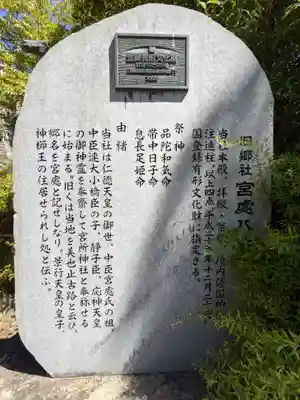 旧郷社 宮處八
当社本殿、拝殿、祭
注連柱、以上四点、平成二十五年十二月二十
国登録有形文化財に指定さる。
祭神
品陀和気命
帯中日子命
息長足姫命
由緒
当社は仁徳天皇の御世、中臣宮處氏の祖
中臣連大小橋臣の子、静子臣、応神天皇
の御神霊を奉齋して宮所神社と奉称せる
に始まる。旧くは当地を美也止古路と云ひ、
郷名を宮處と記せしなり。景行天皇の皇子、
神櫛王の住居せられし処と伝ふ。